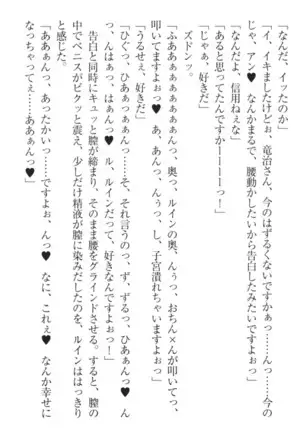 「なんだ、イッたのか」
「イ、イキましたけどぉ、竜治さん、今のはずるくないですかぁっ……んっ……今の
じゃ、アン♥ なんかまるで、腰動かしたいから告白したみたいですよぉっ♥」
「なんだよ、信用ねぇな」
「あると思ってたんですかーーーーっ！」
「じゃぁ、好きだ」
ズドンッ。
「ふあぁぁぁぁぁぁぁんっ、奥っ、ルインの奥、んぅっ、おちん×んが叩いてっ、
叩いてますよぉっ♥ あ、あんっ、んぅっ、し、子宮潰れちゃいますよぉっ」
「うるせぇ、好きだ」
「ひぐっ、ひあぁっぁぁんっ……そ、それ言うのっ、ず、ずるっ、ひあぁんっ♥ ん
っ、んはぁっ、はぁっ♥ ル、ルインだって、好きなんですよぉっ！」
告白と同時にキュッと膣が締まり、そのまま腰をグラインドさせる。すると、膣の
中でペニスがビクッと震え、少しだけ精液が膣に染みだしたのを、ルインははっきり
と感じた。
「ああぁんっ、あったかいっ……ですよぉ、んっ♥ なに、これぇ♥ なんか幸せに
なっちゃってぇっ……ああぁんっ♥